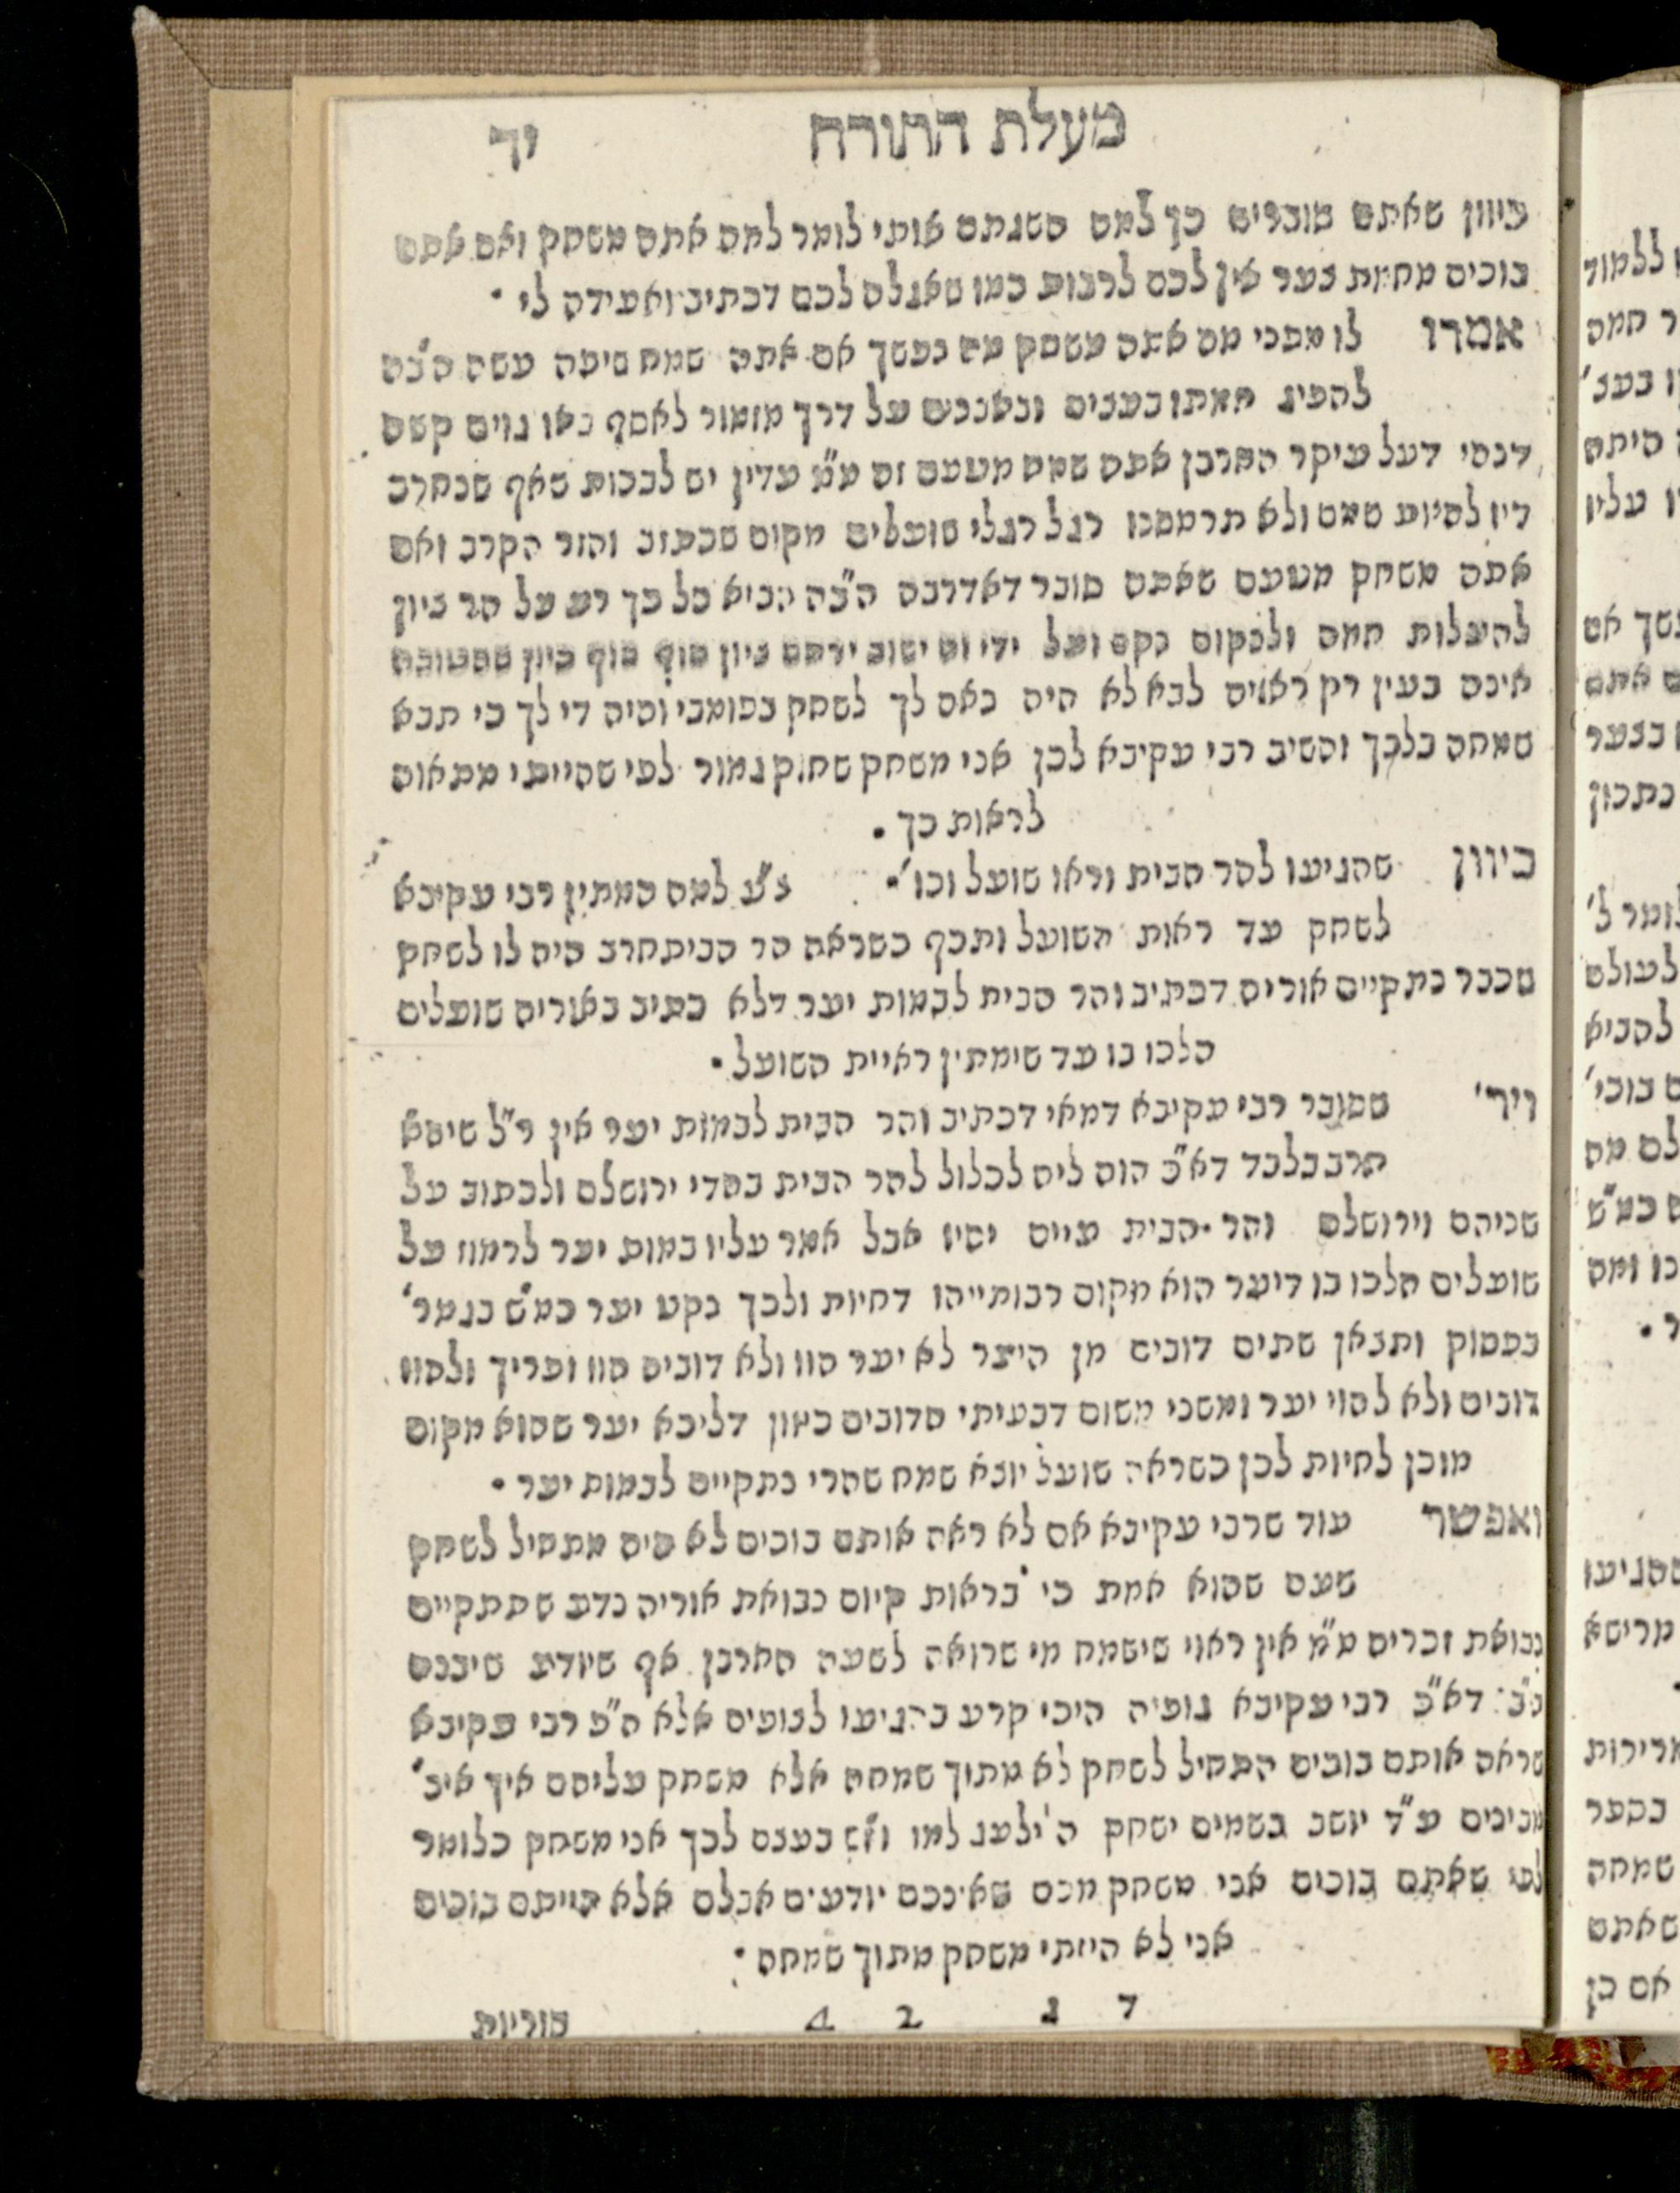 מעלת התורה יד
כיוון שאתם סוברים כן למה השגתם אותי לומר למה אתה משחק ואם אתם
בוכים מחמת צער אין לכם לרבות כמו שאגלה לכם דכתיב ואעידה לי ·
אמרו לו מפני מה אתה משחק מה נפשך אם אתה שמח סיעה עשה הצ״ה
להפיג חמתו בעצים ובאבנים על דרך מזמור לאסף באו גוים קשה
דנהי דעל עיקר החרבן אתה שמח מטעם זה מ״מ עדיין יש לבכות שאף שנחרב
דיו להיות שמם ולא תרמסנו רגל רגלי שועלים מקום שכתוב והזר הקרב ואם
אתה משחק מטעם שאתה סובר דאדרבה הצ״ה הביא כל כך רע על הר ציון
להעלות חמה ולנקום נקם ועל ידי זה ישוב ירחם ציון סוף סוף כיון שהטובה
אינה בעין רק ראויה לבא לא היה נאה לך לשחק בפומבי והיה די לך כי תבא
שמחה בלבך והשיב רבי עקיבא לכן אני משחק שחוק גמור לפי שהייתי מתאוה
לראות כך ·
כיוון שהגיעו להר הבית וראו שועל וכו׳ · צ״ע למה המתין רבי עקיבא
לשחק עד ראות השועל ותכף כשראה הר הבית חרב היה לו לשחק
שכבר נתקיים אוריה דכתיב והר הבית לבמות יער דלא כתיב באוריה שועלים
הלכו בו עד שימתין ראיית השועל ·
ויר׳ שסובר רבי עקיבא דמאי דכתיב והר הבית לבמות יער אין ר״ל שיהא
חרב בלבד דא״כ הוה ליה לכלול להר הבית בהדי ירושלם ולכתוב על
שניהם וירושלם והר הבית עיים יהיו אבל אמר עליו במות יער לרמוז על
שועלים הלכו בו דיער הוא מקום רבותייהו דחיות ולכך נקט יער כמ״ש בגמר׳
בפסוק ותצאן שתים דובים מן היער לא יער הוו ולא דובים הוו ופריך ולהוו
דובים ולא להוי יער ומשני משום דבעיתי הדובים כיון דליכא יער שהוא מקום
מוכן לחיות לכן כשראה שועל יוצא שמח שהרי נתקיים לבמות יער ·
ואפשר עוד שרבי עקיבא אם לא ראה אותם בוכים לא היה מתחיל לשחק
שעם שהוא אמת כי בראות קיום נבואת אוריה נדע שתתקיים
נבואת זכריה מ״מ אין ראוי שישמח מי שרואה לשעה החרבן אף שיודע שיבנה
דא״כ רבי עקיבא גופיה היכי קרע בהגיעו לצופים אלא ה״פ רבי עקיבא
שראה אותם בוכים התחיל לשחק לא מתוך שמחה אלא משחק עליהם איך אינ׳
מבינים ע״ד יושב בשמים ישחק ה׳ ילעג למו וז״ש בעצם לכך אני משחק כלומר
לפי שאתם בוכים אני משחק מכם שאינכם יודעים אבלם אלא הייתם בוכים
אני לא הייתי משחק מתוך שמחה :
ד ג 2 4 סודיות